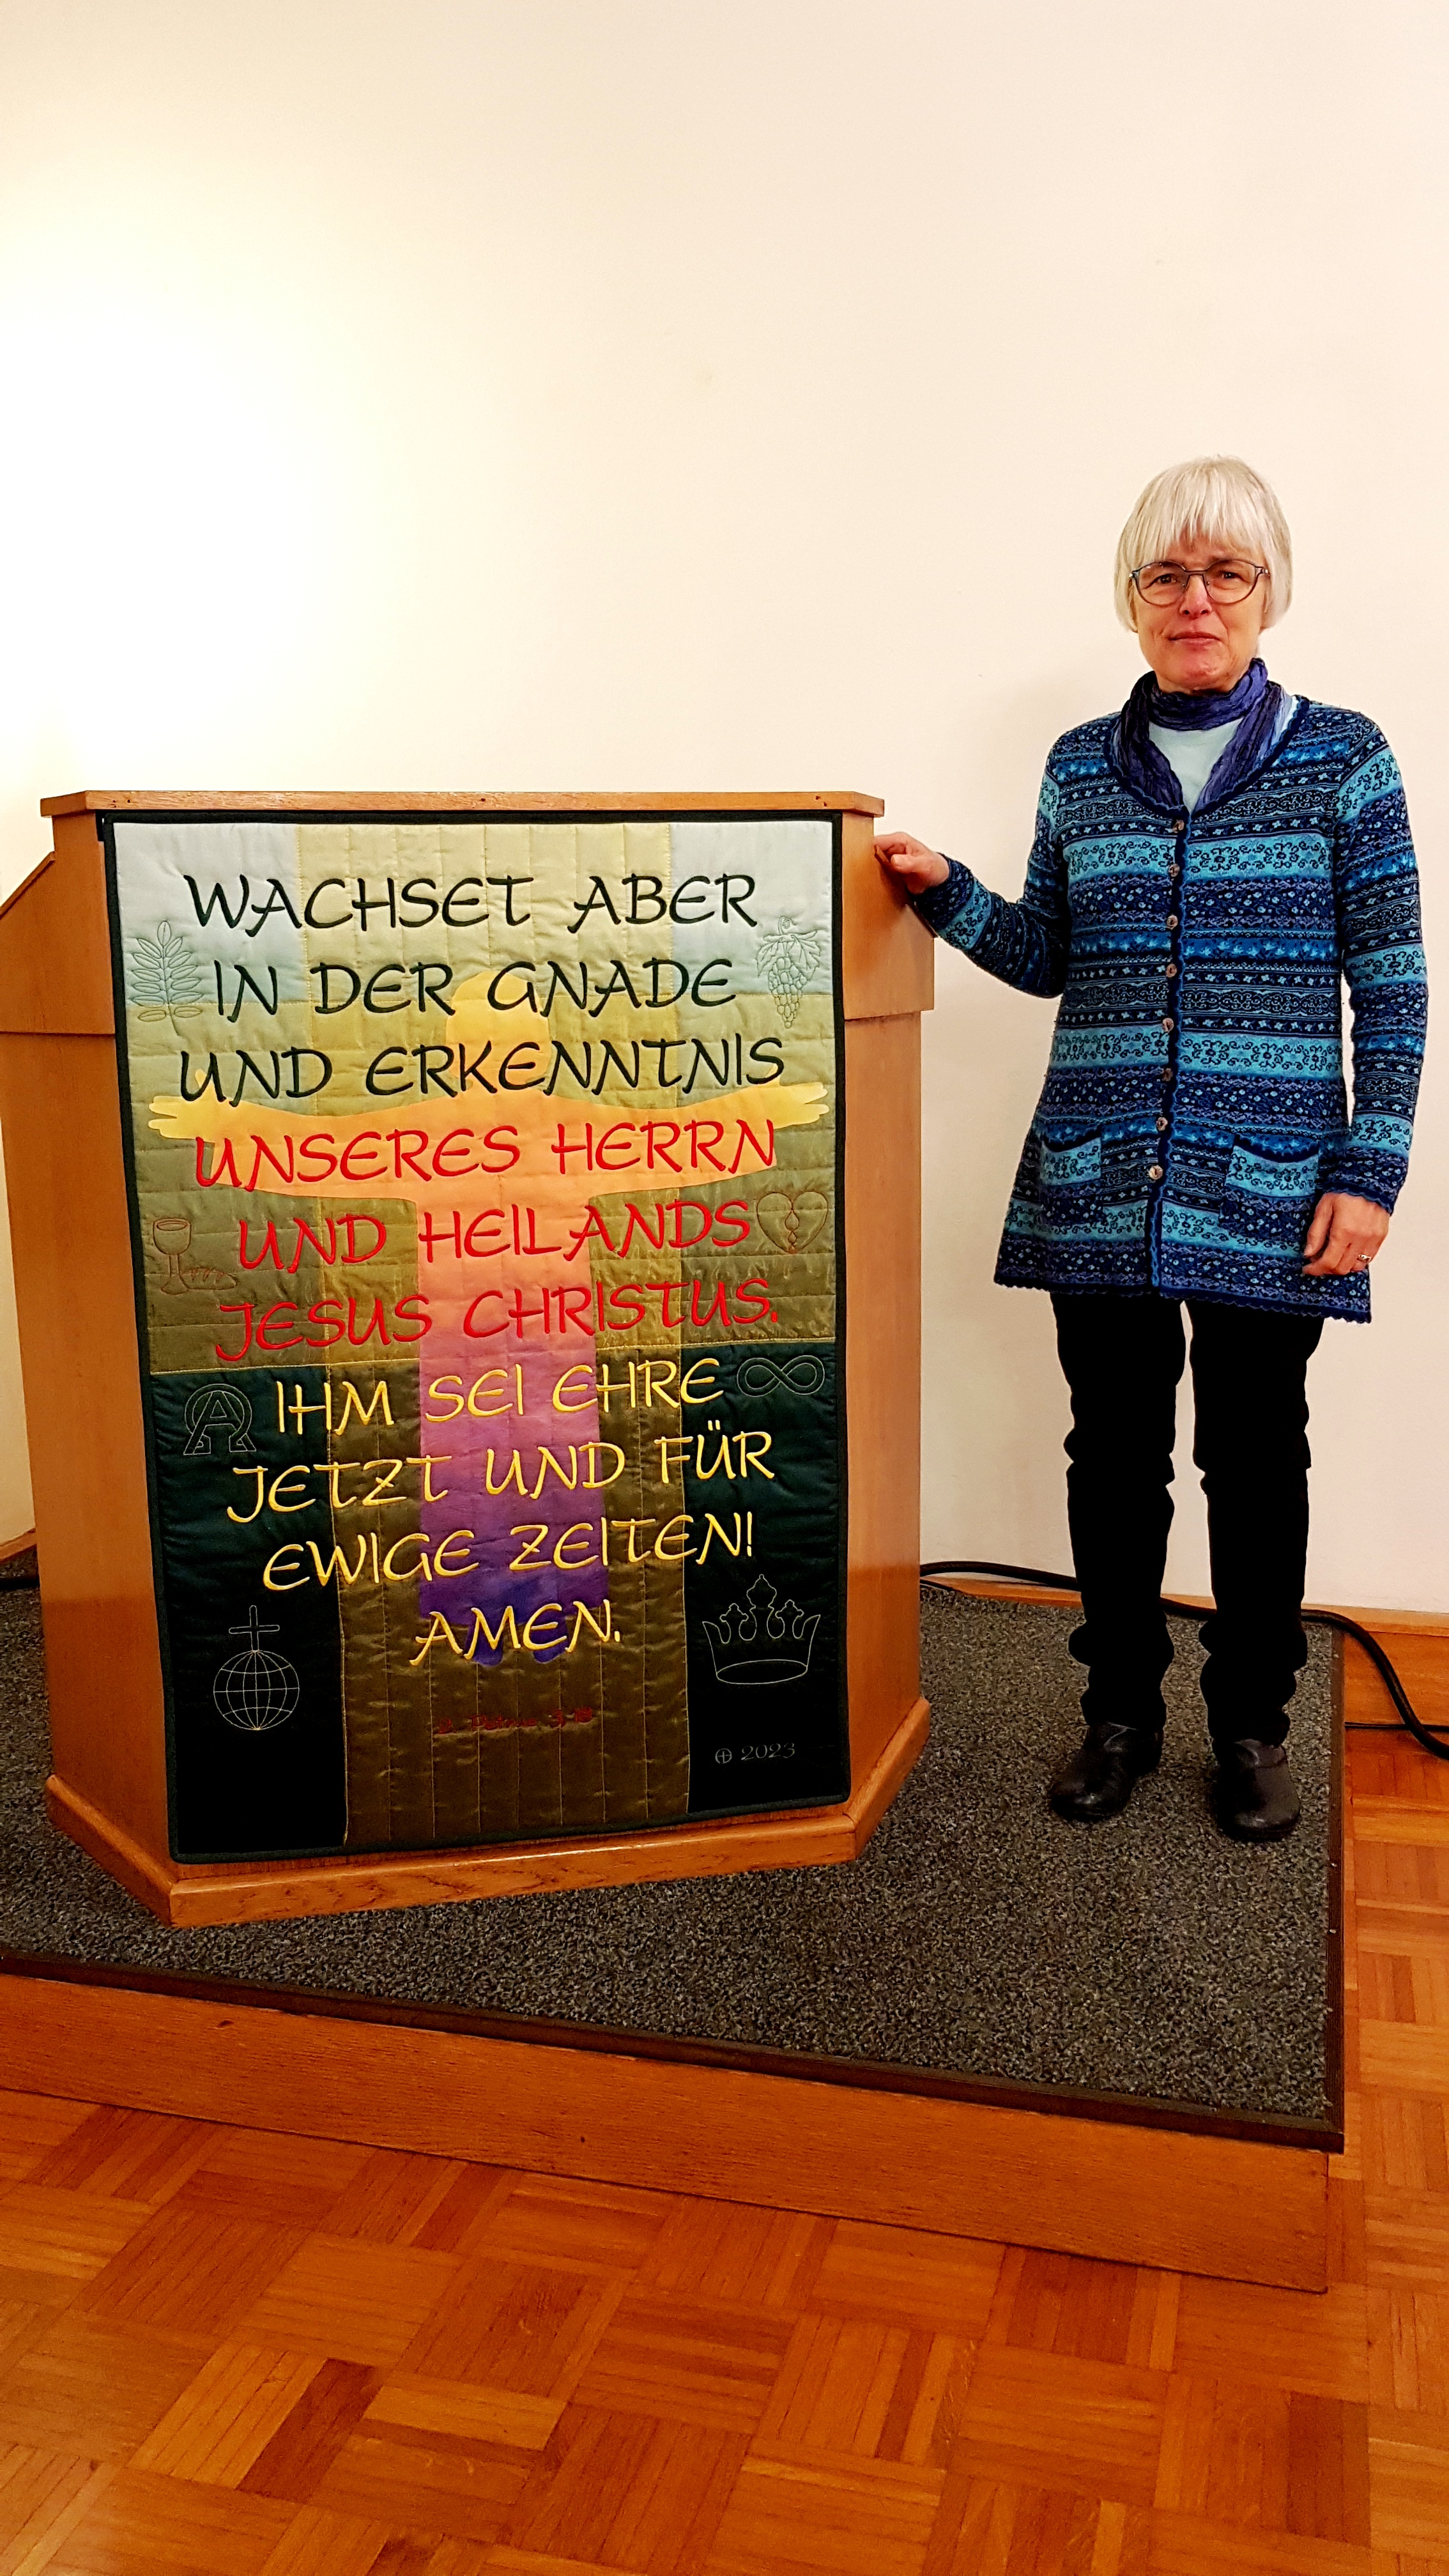 WACHSET ABER
IN DER GNADE
UND ERKENNTNIS
UNSERES HERRN
UND HEILANDS
JESUS CHRISTUS.
IHM SEI EHRE
JETZT UND FÜR
EWIGE ZEITEN!
AMEN.
2. Petrus 3,18
2023